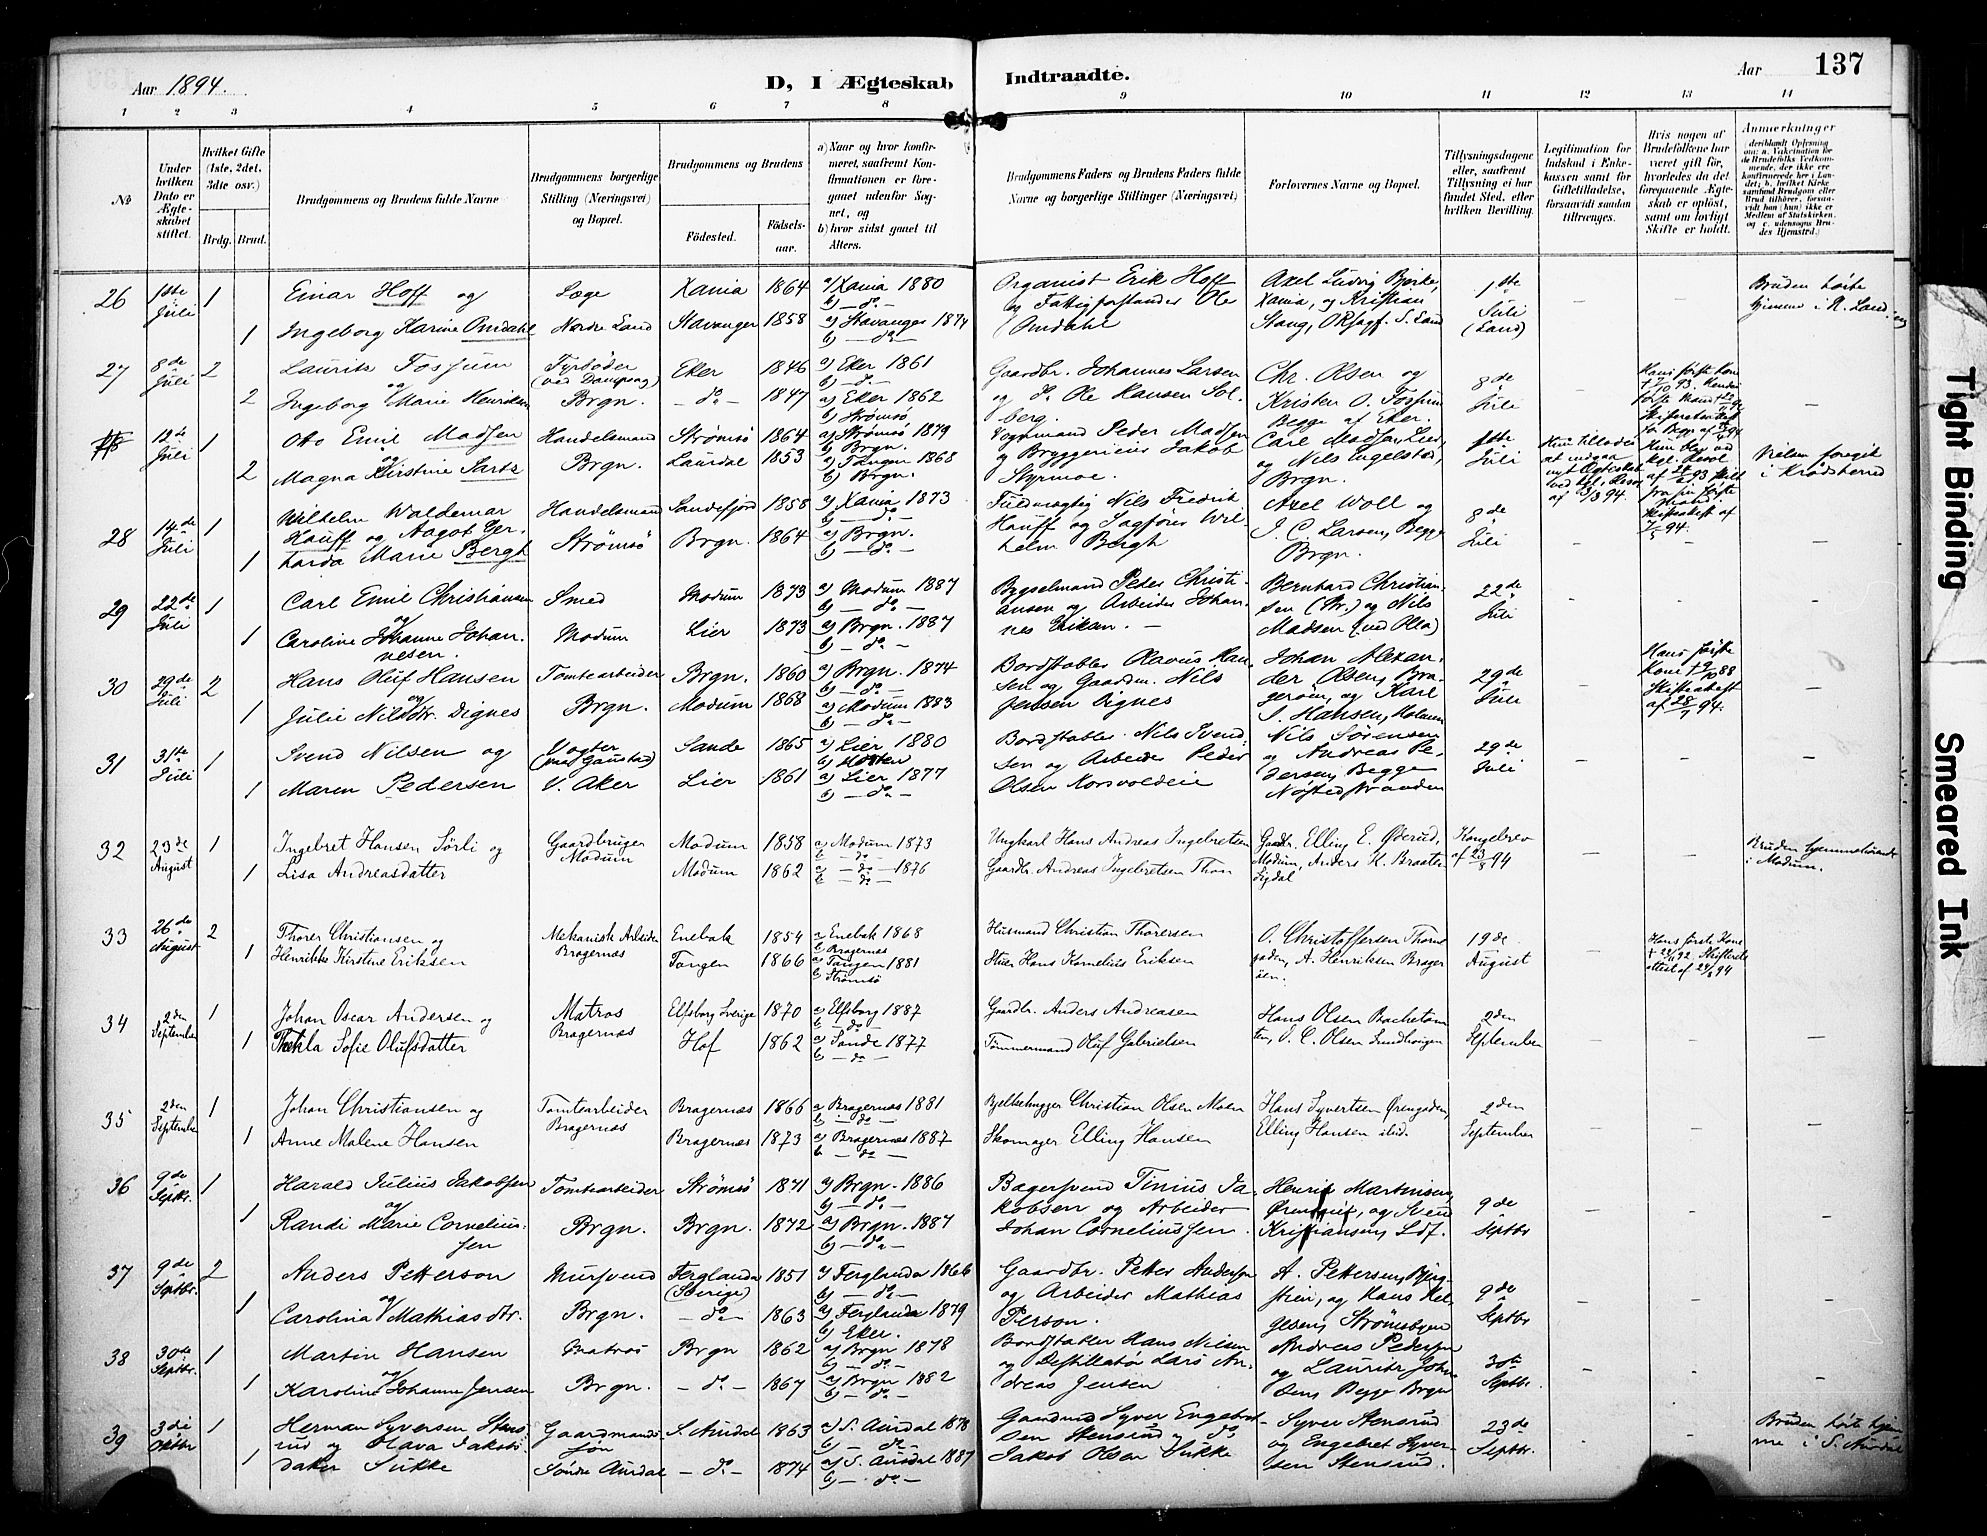 Aar 1894.
D, I Ægteskab Indtraadte.
Aar 137
1 2 3 4 5 6 7 8 9 10 11 12 13 14
No
Under hvilken Dato er Ægteskabet stiftet.
Hvilket Gifte (1ste, 2det, 3die osv.)
Brdg. Brud.
Brudgommens og Brudens fulde Navne
Brudgommens borgerlige Stilling (Næringsvei) og Bopæl.
Brudgommens og Brudens
Fødested. Fødselsaar.
a) Naar og hvor konfirmeret, saafremt Konfirmationen er foregaaet udenfor Sognet, og
b) hvor sidst gaaet til Alters.
Brudgommens Faders og Brudens Faders fulde Navne og borgerlige Stillinger (Næringsvei)
Forlovernes Navne og Bopæl.
Tillysningsdagene eller, saafremt Tillysning ei har fundet Sted, efter hvilken Bevilling.
Legitimation for Indskud i Enkekassen samt for Giftetilladelse, forsaavidt saadan tiltrænges.
Hvis nogen af Brudefolkene har været gift før, hvorledes da det foregaaende Ægteskab er opløst, samt om lovligt Skifte er holdt.
Anmerkninger
26 1ste Juli 1 Einar Hoff og Læge Xania 1864 a) Xania 1880 b) — do — Organist Erik Hoff
1 Ingeborg Karine Omdahl Nordre Land Stavanger 1858 a) Stavanger 1874 b) — do — og Fattigforstander Ole Omdahl
Axel Ludvig Bjerke, Xania, og Kristian Stang, S. Land
1ste Juli (Land) — —
27 8de Juli 2 Lauritz Fossum Fyrbøder Eker 1846 a) Eker 1861 b) — d. — Gaardbr. Johannes Larsen
2 og Ingeborg Marie Henriksen Brgn. — do — 1847 a) Eker 1862 b) Strømsø og do Ole Hansen Solberg.
Chr. Olsen og Kristen O. Fossum Begge af Eker
8de Juli —
12te Juli 1 Otto Emil Madsen Handelsmand Strømsø 1864 a) Strømsø 1879 b) Brgn. Vognmand Peder Madsen
2 og Magna Kirstine Sartz Brgn. Laurdal 1853 a) Tangen 1868 b) Brgn. og Bryggeriens Jakob Styrmoe.
Carl Madsen, Lier og Nils Engelstad, Brgn.
1ste Juli
Vielsen foregik i Krødsherred
28 14de Juli 1 Wilhelm Waldemar Hauff og Aagot Ger- Handelsmand Sandefjord 1858 a) Xania 1873 b) — do — Fuldmægtig Nils Fredrik
1 harda Marie Bergh Strømsø Brgn. 1864 a) Brgn. b) — do — Hauff og Sagfører Wilhelm Bergh
Axel Woll og J. C. Larsen, Begge Brgn.
8de Juli — —
29 22de Juli 1 Carl Emil Christiansen Smed Modum 1873 a) Modum 1887 b) — do — Bygselmand Peder Christi-
1 og Caroline Johanne Johannesen. Modum Lier 1873 a) Brgn. 1887 b) — do — ansen og Arbeider Johannes Erikan. —
Bernhard Christiansen og Nils Madsen
22de Juli — — —
30 29de Juli 2 Hans Oluf Hansen Tomtearbeider Brgn. 1860 a) Brgn. 1874 b) — do — Bordstabler Olavus Han-
1 og Julie Nilsdtr. Dignes Brgn. Modum 1868 a) Modum 1883 b) — do — sen og Gaardm. Nils Jensen Dignes
Johan Alexander Olsen, Bragerøen, og Karl J. Hansen,
29de Juli — Hans første Kone † 9/10 88 Skifteattest af 28/7 94. —
31 31te Juli 1 Svend Nilsen og Vogter (ved Gaustad) Sande 1865 a) Lier 1880 b) Bordstabler Nils Svend-
1 Maren Pedersen V. Aker Lier 1861 a) Lier 1877 b) — do — sen og Arbeider Peder Olsen Korsvoldeie
Nils Sørensen og Andreas Pedersen, Begge Nøstedstranden
29de Juli — — —
32 23de August 1 Ingebret Hansen Sørli og Gaardbruger Modum Modum 1858 a) Modum 1873 b — do — Ungkarl Hans Andreas Ingebretsen
1 Lisa Andreasdatter Modum 1862 a — do — 1876 b — do — Gaardbr. Andreas Ingebretsen Thon
Gaardbr. Elling E. Øderud, Modum, Anders H. Braaten Sigdal
Kongebrev af 23/8 94 — — Bruden hjemmehørende i Modum.
33 26de August 2 Thorer Christiansen og Mekanisk Arbeider Enebak 1854 a Enebak 1868 b Bragernæs Husmand Christian Thorersen
1 Henrikke Kirstine Eriksen Bragernæs Tangen 1866 a) Tangen 1881 b) Strømsø Stuer Hans Kornelius Eriksen
O. Christoffersen Thornegaden, A. Henriksen Bragerøen.
19de August — Hans første Kone † 92. Skifteattest af 24/8 94 —
34 2den September 1 Johan Oscar Andersen og Matros Elfsborg Sverige 1870 a) Elfsborg 1887 b — do — Gaardbr. Anders Andreasen
1 Thekla Sofie Olufsdatter Bragernæs Hof 1862 a) Sande 1877 b — do — Tømmermand Oluf Gabrielsen
Hans Olsen Bachetomten, O. C. Olsen Sundhaugen
2den September — — —
35 2den September 1 Johan Christiansen og Tomtearbeider Bragernæs 1866 a Bragernæs 1881 b — do — Bjelkehugger Christian Olsen Moen
1 Anne Malene Hansen Bragernæs Bragernæs 1873 a) Bragernæs 1887 b — do — Skomager Elling Hansen
Hans Syvertsen Ørengaden, Elling Hansen ibid.
2den September — — —
36 9de Septbr. 1 Harald Julius Jakobsen Tomtearbeider Strømsø 1871 a) Brgn. 1886 b) — do — Bagersvend Tinius Ja-
1 og Randi Marie Corneliussen Brgn. Brgn. 1872 a) Brgn. 1887 b) — do — kobsen og Arbeider Johan Corneliussen
Henrik Martinsen, og Svend Kristiansen, Ldf.
9de Septbr — — —
37 9de Septbr. 2 Anders Petterson Mursvend Ferglanda (Sverige) 1851 a) Ferglanda 1866 b) — do — Gaardbr. Petter Anderson
1 og Carolina Mathiasdtr. Brgn. — do — 1863 a) Ferglanda 1879 b) Eker. og Arbeider Mathias Person.
A. Pettersen, og Hans Helgesen, Strømsbyen
9de Septbr — — —
38 30te Septbr. 1 Martin Hansen Matros Brgn 1862 a) Brgn 1878 b) — do — Bordstabler Hans Nilsen
1 og Karoline Johanne Jensen Brgn. — do — 1867 a) Brgn 1882 b) — do — og Destillatør Lars Andreas Jensen
Andreas Pedersen og Lauritz Johnsen, Begge Brgn
30te Septbr. — — —
39 3die Oktbr 1 Herman Syversen Stensrud og Olava Jakobs- Gaardmandssøn S. Aurdal 1863 a) S. Aurdal 1878 b) — do — Gaardmd Syver Engebret-
1 datter Sukke Søndre Aurdal — do — 1874 a) S. Aurdal 1887 b) — do — sen Stensrud og do Jakob Olsen Sukke
Syver Stensrud og Engebret Syversen Stensrud.
23de Septbr. — — Bruden hørte hjemme i S. Aurdal
Tight Binding
Smeared Ink